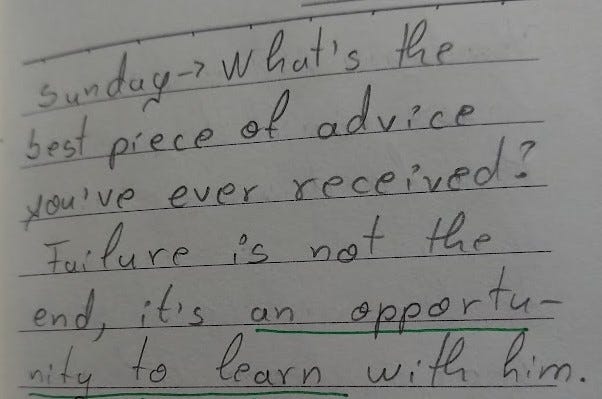 Sunday → What's the
best piece of advice
you've ever received?
Failure is not the
end, it's an opportu-
nity to learn with him.